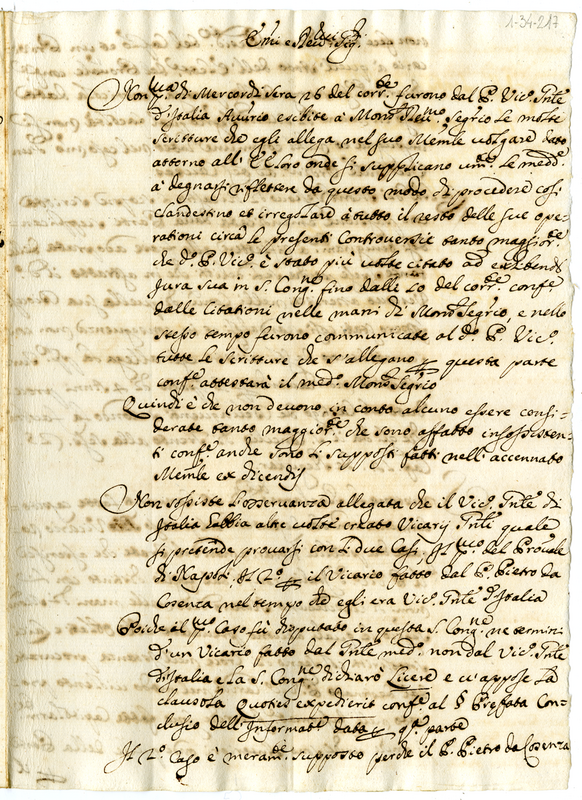 1-34-217
Emi e Reu.mi Sig.ri
Non p.a di Mercordi sera 26 del corr.te furono dal P. Vic.o Gnle
d'Italia esibite à Mons.r Reu.mo Segrio Le molte
scritture che egli allega nel suo Memle uolgare dato
attorno all' EE. Loro onde si supplicano um.te Le med.e
à degnarsi riflettere da questo modo di procedere cosi
clandestino et irregolare à tutto il resto delle sue ope-
rationi circa le presenti Controuersie tanto maggior.te
che d.o P. Vic.o è stato più uolte citato ad exhibend.
Jura sua in S. Cong.ne fino dalli 20 del corr.te conf.e
dalle Citationi nelle mani di Mons.r Segrio, e nello
stesso tempo furono communicate al d.o P. Vic.o
tutte le Scritture che s'allegano per questa parte
conf.e attestarà il med.o Mons.r Segrio
Quindi è che non deuono in conto alcuno essere consi-
derate tanto maggior.te che sono affatto insossisten-
ti conf.e anche sono li supposti fatti nell' accennato
Memle ex dicendis
Non sossiste L'osseruanza allegata che il Vic.o Gnle di
Italia habbia altre uolte creato Vicarij Gnli quale
si pretende prouarsi con li due Casi, Il p.mo del Prouale
di Napoli, Il 2.o per il Vicario fatto dal P. Pietro da
Cosenza nel tempo che egli era Vic.o Gnle d'Italia
Poiche il p.mo Caso fù disputato in questa S. Cong.ne ne termini
d'un Vicario fatto dal Gnle med.o non dal Vic.o Gnle
d'Italia e La S. Cong.ne dichiarò Licere e u'appose La
clausola Quoties expedierit conf.e al § Prefata Con-
clusio dell' Informat.e data per q.a parte
Il 2.o Caso è meram.te supposto perche il P. Pietro da Cosenza